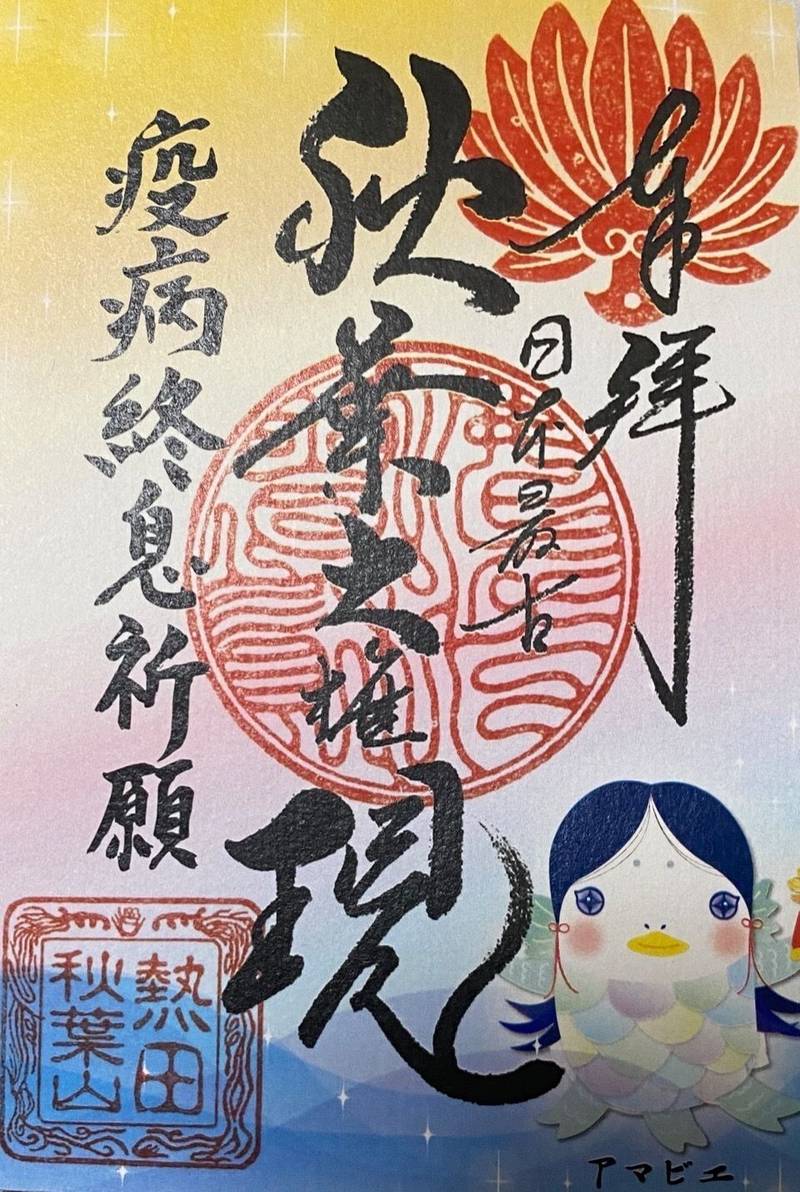 奉拝
日本最古
秋葉大権現
疫病終息祈願
熱田
秋葉山
アマビエ